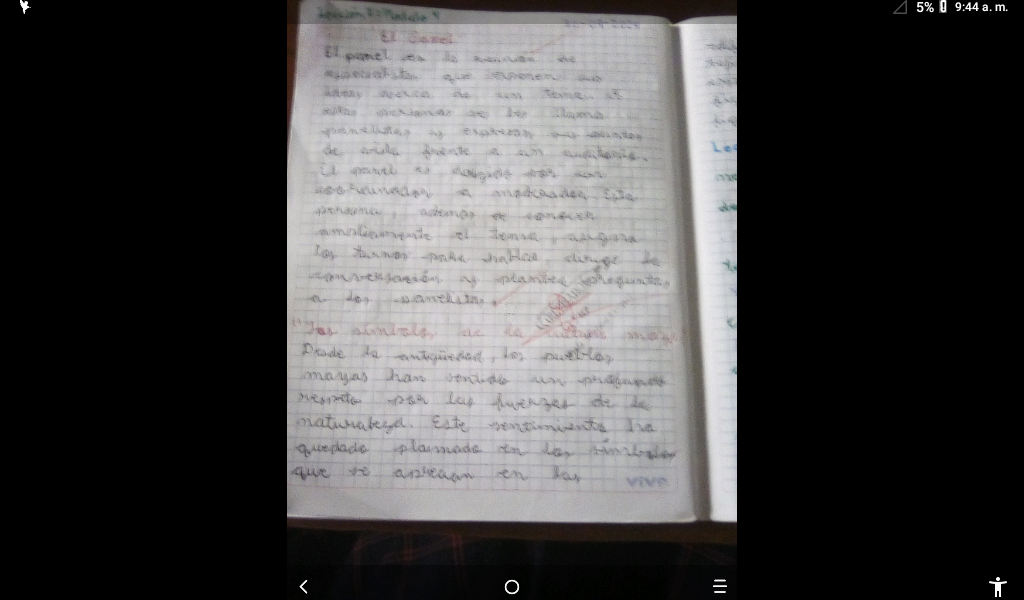 5% 9:44 a. m.
El Panel
El panel es la reunión de
especialistas que exponen sus
ideas acerca de un tema. A
estas personas se les llama
panelistas y expresan sus puntos
de vista frente a un auditorio.
El panel es dirigido por un
coordinador o moderador. Esta
persona, además de conocer
ampliamente el tema, asigna
los turnos para hablar, dirige la
conversación y plantea preguntas
a los panelistas.
"Los símbolos de la cultura maya"
Desde la antigüedad, los pueblos
mayas han sentido un profundo
respeto por las fuerzas de la
naturaleza. Este sentimiento ha
quedado plasmado en los símbolos
que se aprecian en las
vivo